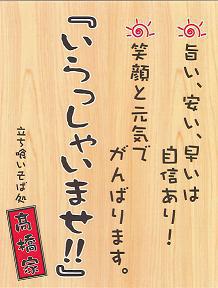 旨い、安い、早いは
自信あり!
笑顔と元気で
がんばります。
『いらっしゃいませ!!』
立ち喰いそば処
高橋家